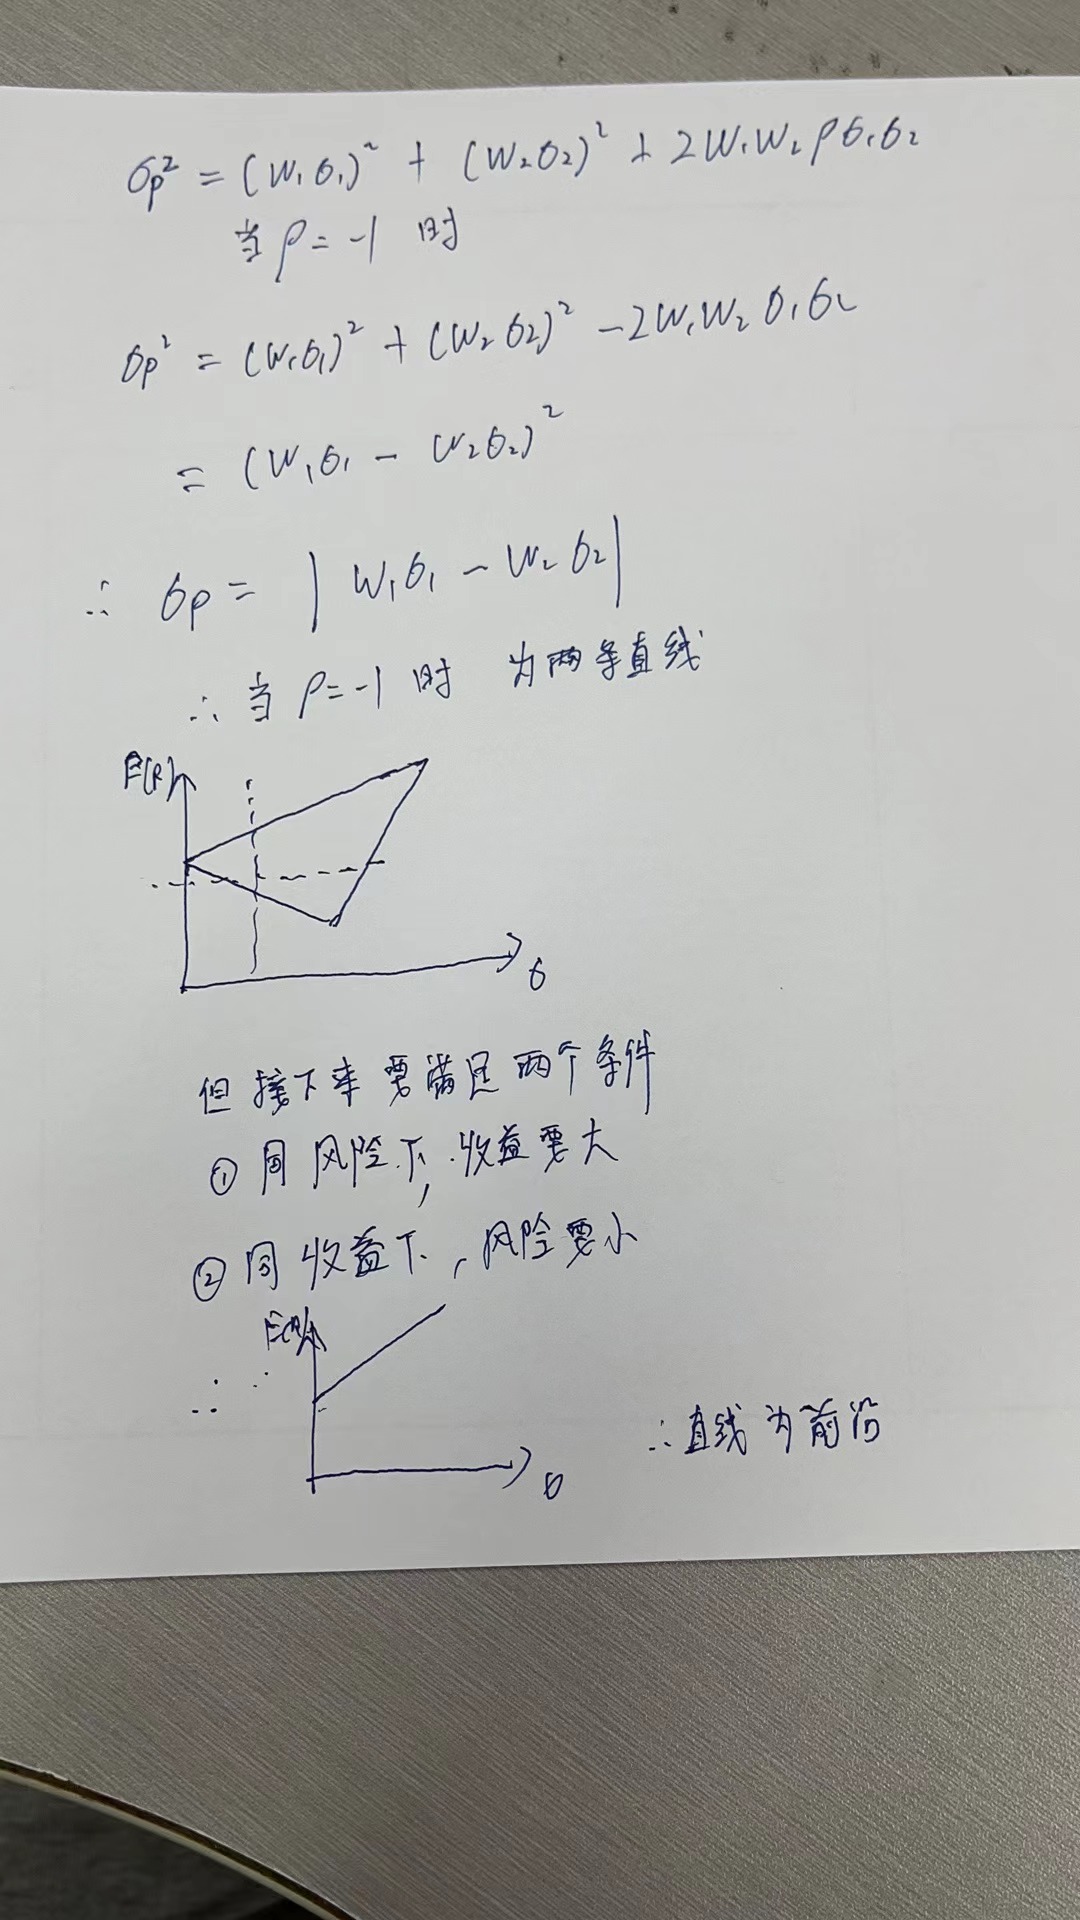 σp² = (W₁σ₁)² + (W₂σ₂)² + 2W₁W₂ρσ₁σ₂
当ρ=-1 时
σp² = (W₁σ₁)² + (W₂σ₂)² - 2W₁W₂σ₁σ₂
= (W₁σ₁ - W₂σ₂)²
∴ σp = | W₁σ₁ - W₂σ₂|
∴当ρ=-1时 为两条直线
E(R)
σ
但接下来要满足两个条件
① 同风险下,收益要大
② 同收益下,风险要小
E(R)
∴
σ
∴直线为前沿